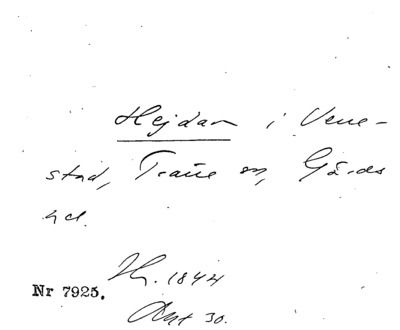 Hejdan i Vene-
stad, Trane sn, Gärds
hd.
Nr 7925. 1844
30.